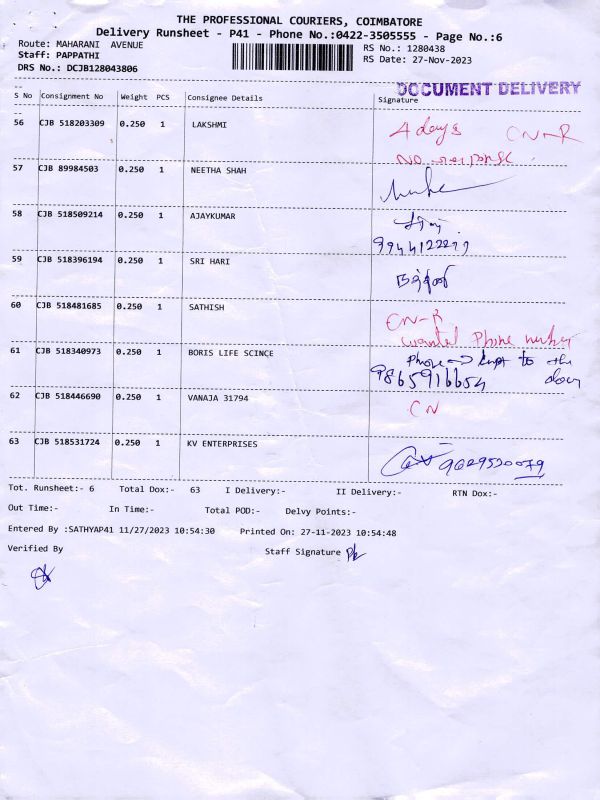 THE PROFESSIONAL COURIERS, COIMBATORE
Delivery Runsheet - P41 - Phone No.:0422-3505555 - Page No.:6
Route: MAHARANI AVENUE RS No.: 1280438
Staff: PAPPATHI RS Date: 27-Nov-2023
DRS No.: DCJB128043806
DOCUMENT DELIVERY
S No Consignment No Weight PCS Consignee Details Signature
56 CJB 518203309 0.250 1 LAKSHMI 4 days CN-R
No response
57 CJB 89984503 0.250 1 NEETHA SHAH
58 CJB 518509214 0.250 1 AJAYKUMAR
59 CJB 518396194 0.250 1 SRI HARI
60 CJB 518481685 0.250 1 SATHISH CN-R
wanted Phone number
61 CJB 518340973 0.250 1 BORIS LIFE SCINCE Phone kept to the
9865916654 door
62 CJB 518446690 0.250 1 VANAJA 31794 CN
63 CJB 518531724 0.250 1 KV ENTERPRISES 9629520079
Tot. Runsheet:- 6 Total Dox:- 63 I Delivery:- II Delivery:- RTN Dox:-
Out Time:- In Time:- Total POD:- Delvy Points:-
Entered By :SATHYAP41 11/27/2023 10:54:30 Printed On: 27-11-2023 10:54:48
Verified By Staff Signature